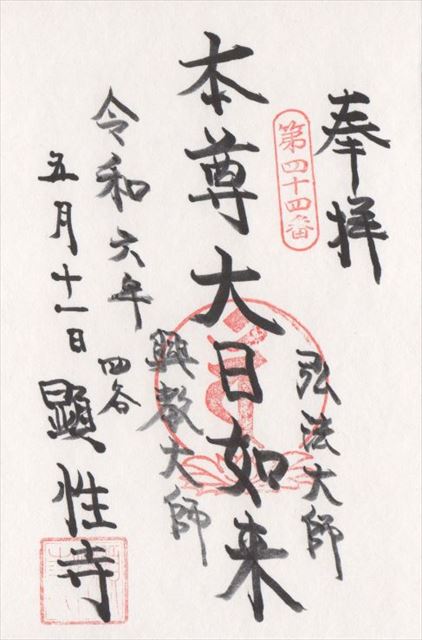 奉拝
第四十四番
弘法大師
本尊大日如来
興教大師
令和六年
五月十一日
四谷
顕性寺